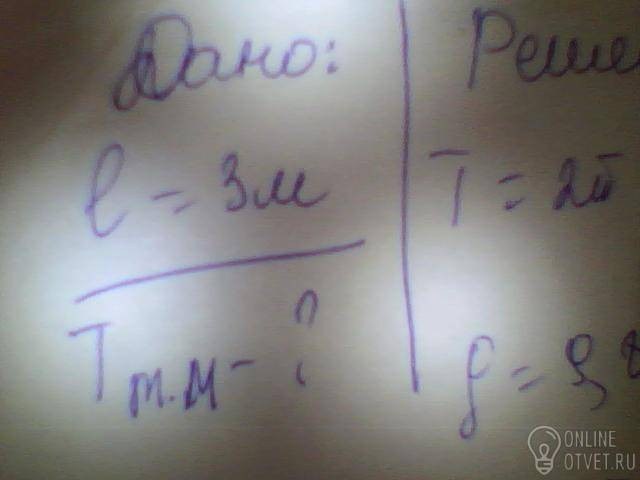 Дано:
l = 3м
Tт.м - ?
Реше
T = 2π
g = 9,8
ONLINE
OTVET.RU